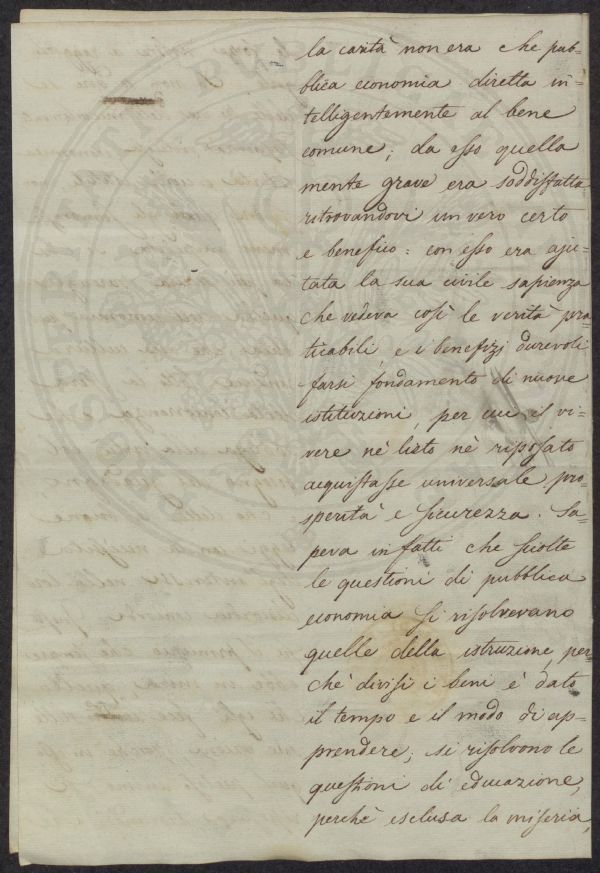 la carità non era che pub=
blica economia diretta in=
telligentemente al bene
comune; da esso quella
mente grave era soddisfatta
ritrovandovi un vero certo
e benefico: con esso era aju=
tata la sua civile sapienza
che vedeva così le verità pra
ticabili, e i benefizj durevoli
farsi fondamento di nuove
istituzioni, per cui il vi=
vere nè lieto nè riposato
acquistasse universale pro=
sperità e sicurezza. Sa=
peva infatti che sciolte
le questioni di pubblica
economia si risolvevano
quelle della istruzione, per
chè divisi i beni è dato
il tempo e il modo di ap=
prendere; si risolvono le
questioni di educazione,
perchè esclusa la miseria,